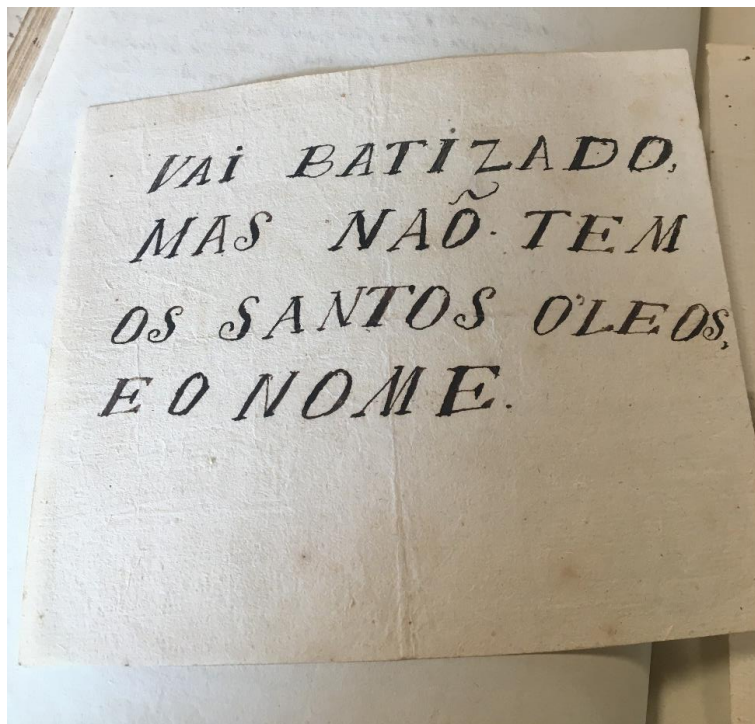 VAi BATiZADO,
MAS NAÕ. TEM
OS SANTOS O'LEOS,
E O NOME.